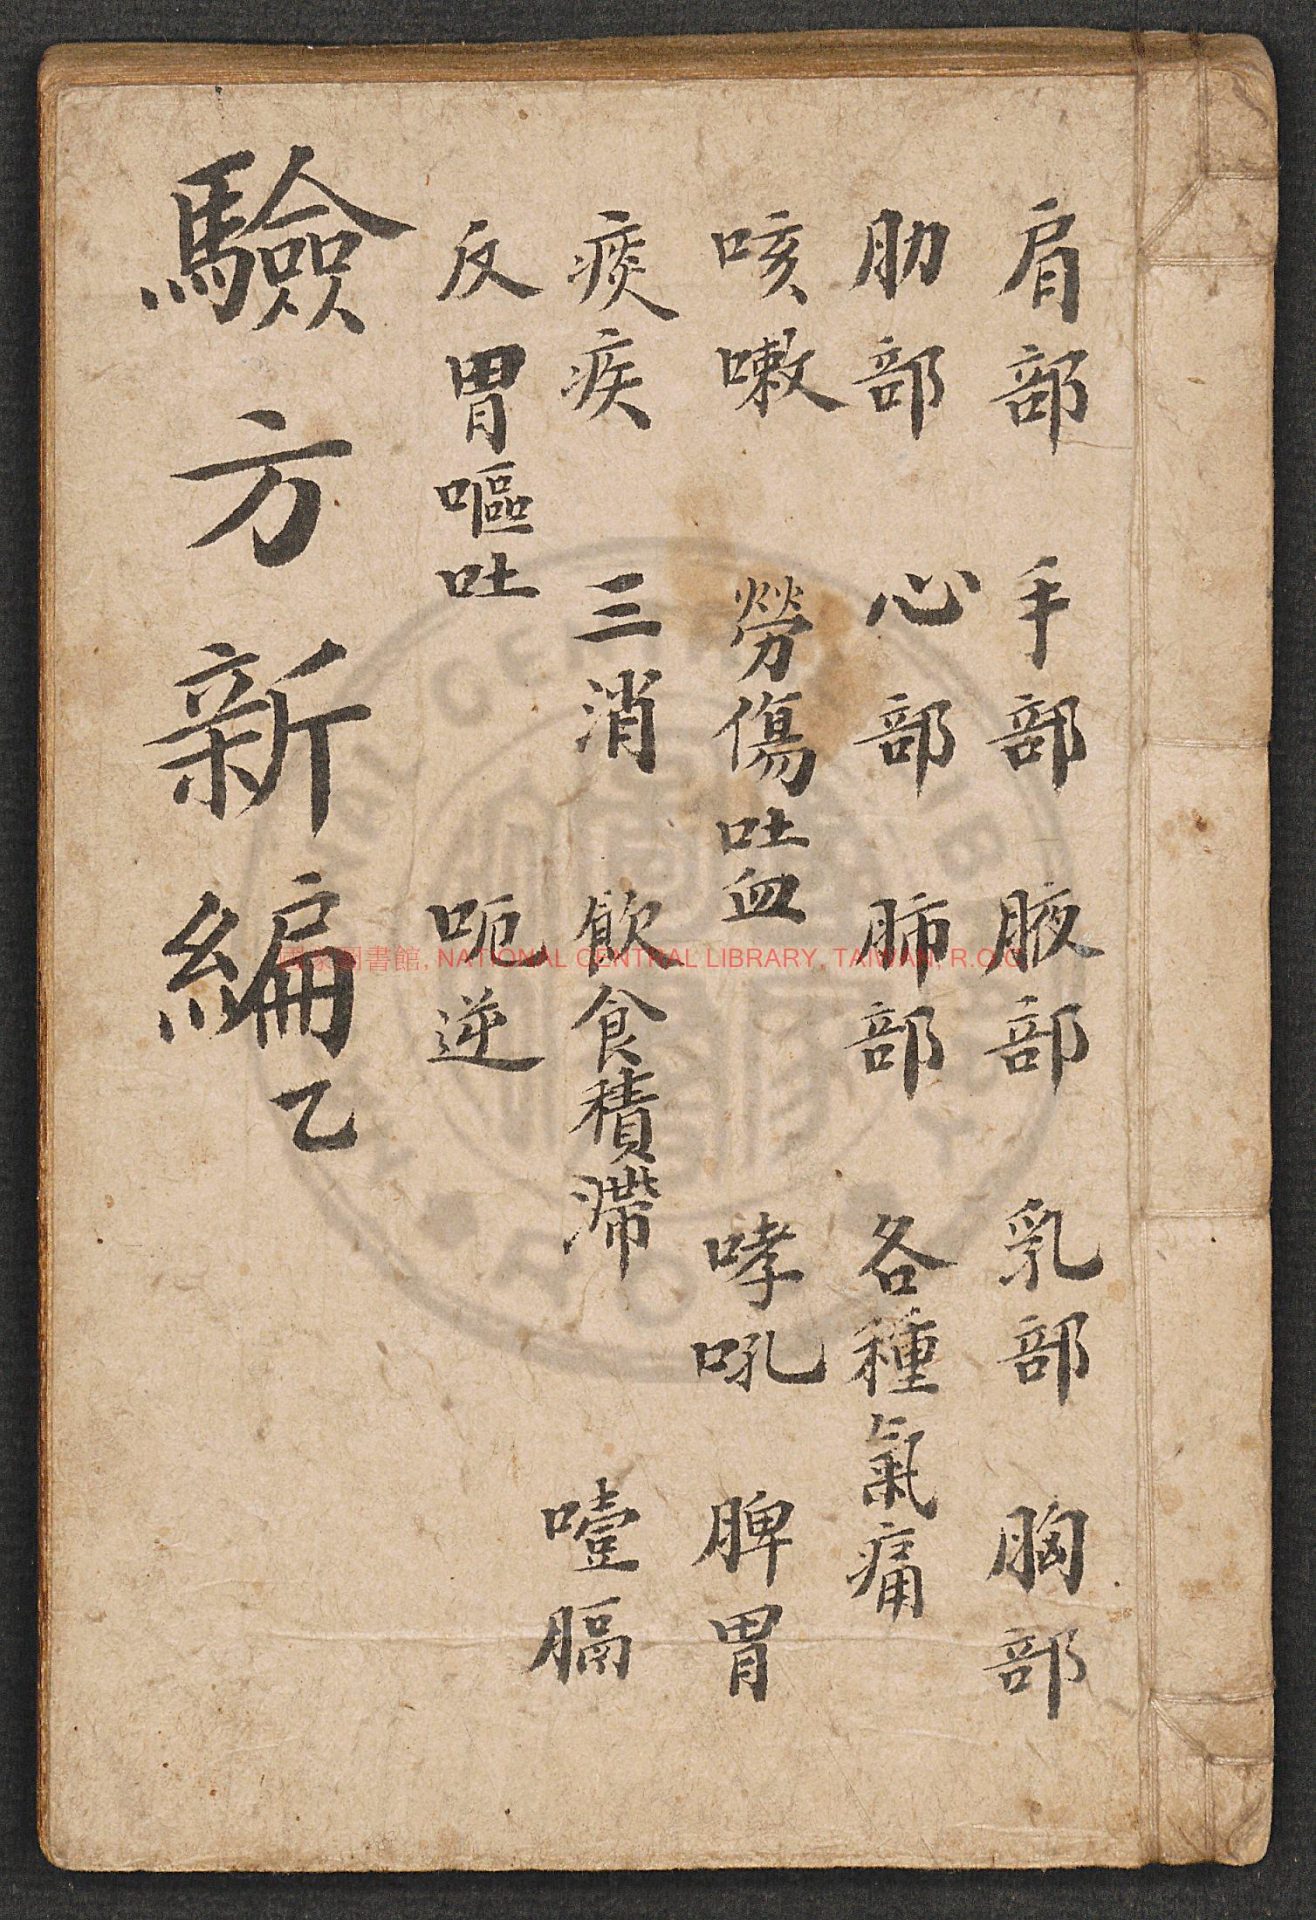 肩部　手部　腋部　乳部　胸部
肋部　心部　肺部　各種氣痛
咳嗽　勞傷吐血　哮吼　脾胃
痰疾　三消　飲食積滯　噎膈
反胃嘔吐　呃逆
驗方新編乙
國家圖書館, NATIONAL CENTRAL LIBRARY, TAIWAN, R.O.C